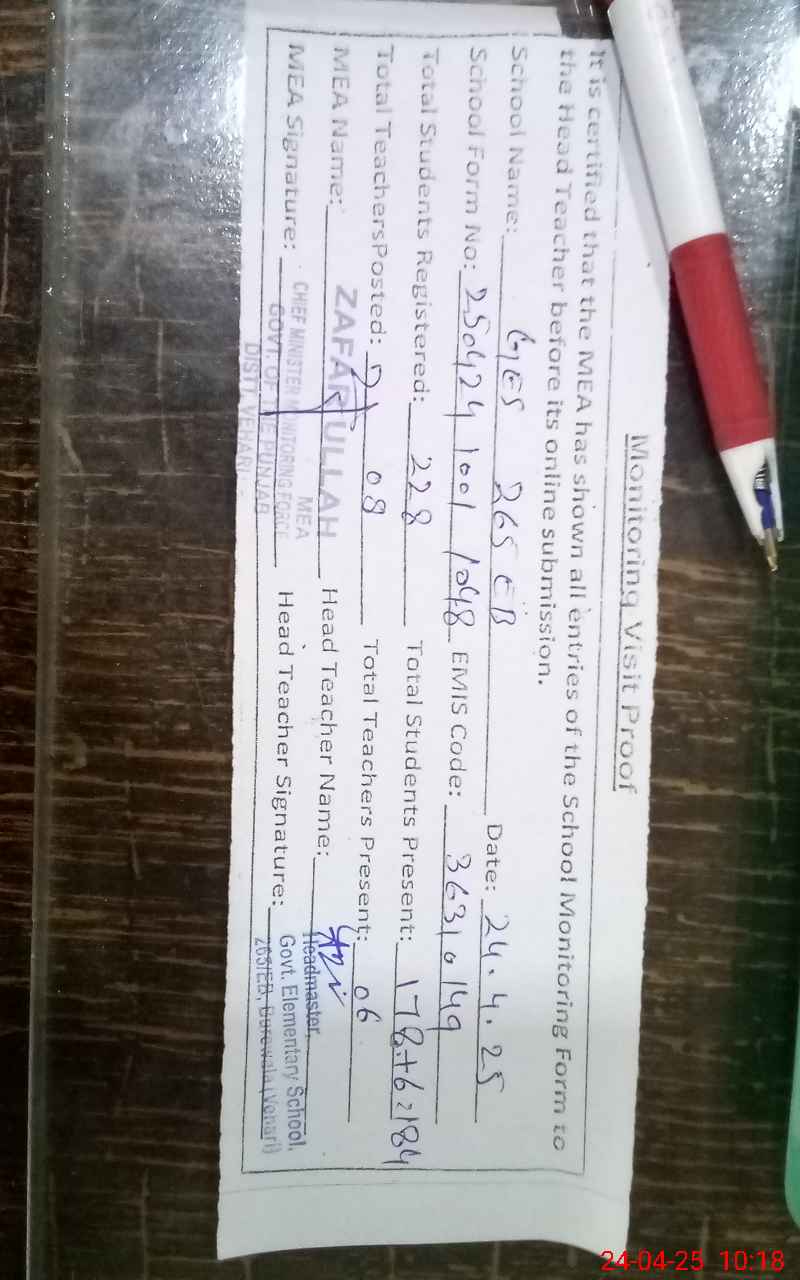 Monitoring Visit Proof
It is certified that the MEA has shown all entries of the School Monitoring Form to
the Head Teacher before its online submission.
School Name: GES 265 EB Date: 24.4.25
School Form No: 250424 1001 1048 EMIS Code: 36310149
Total Students Registered: 228 Total Students Present: 178+6=184
Total TeachersPosted: 08 Total Teachers Present: 06
MEA Name: ZAFAR ULLAH Head Teacher Name:
MEA Signature: Head Teacher Signature:
MEA
CHIEF MINISTER MONITORING FORCE
GOVT. OF THE PUNJAB
DISTT. VEHARI
Headmaster,
Govt. Elementary School,
265/EB, Burewala (Vehari)
24-04-25 10:18